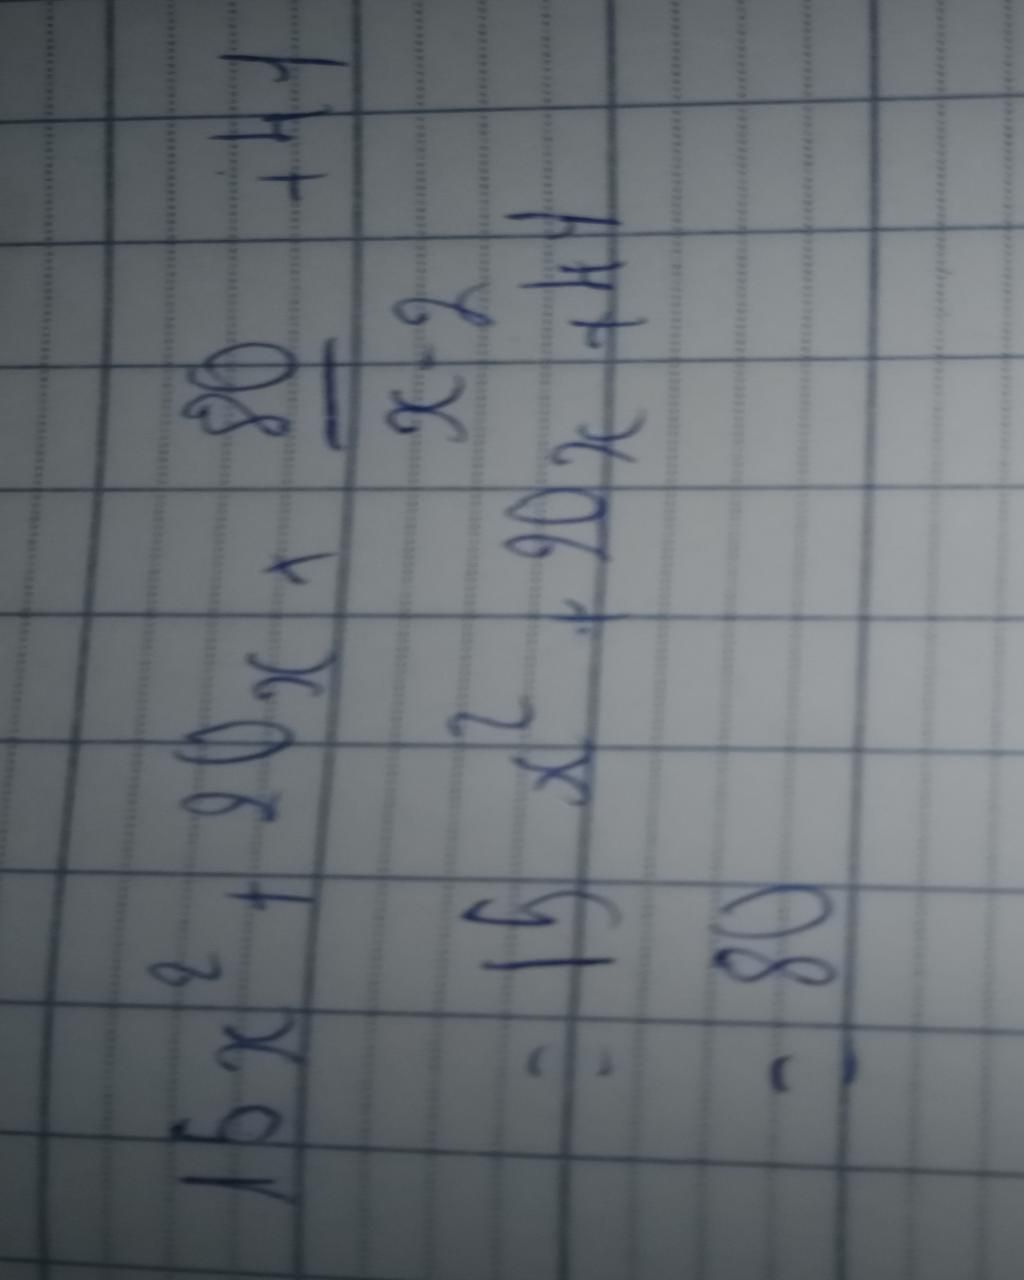 15x² + 20x + 80/(x-2) + 44
= 15x² + 20x + 44
= 80